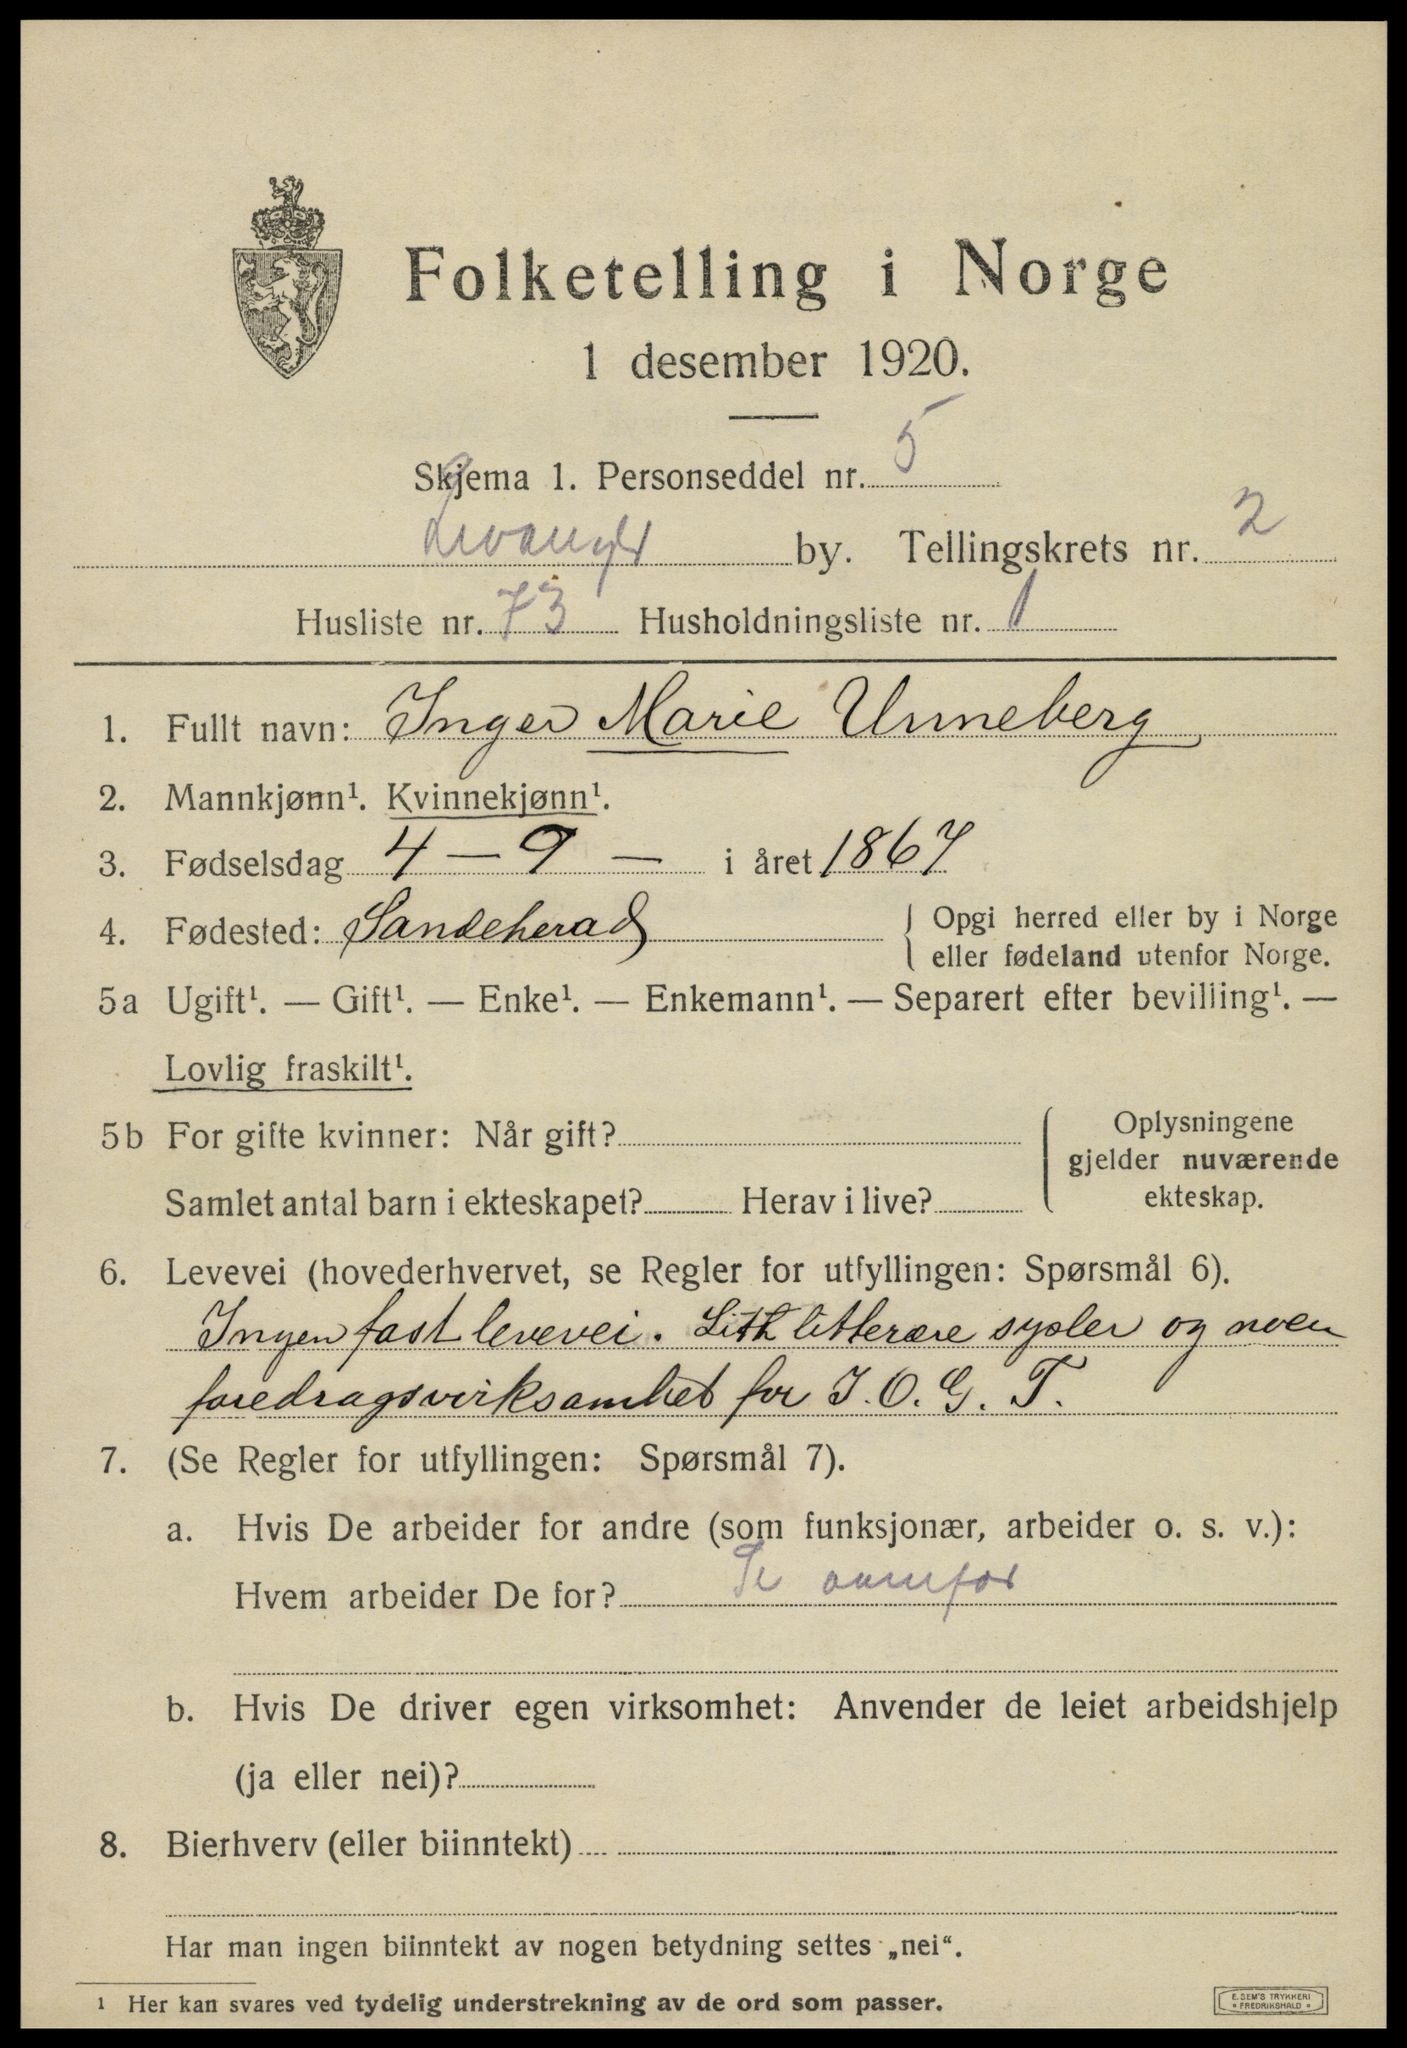 Folketelling i Norge
1 desember 1920.
Skjema 1. Personseddel nr. 5
Levanger by. Tellingskrets nr. 2
Husliste nr. 73 Husholdningsliste nr. 1
1. Fullt navn: Inger Marie Unneberg
2. Mannkjønn¹. Kvinnekjønn¹.
3. Fødselsdag 4 – 9 – i året 1867
4. Fødested: Sandeherad { Opgi herred eller by i Norge
eller fødeland utenfor Norge.
5a Ugift¹. — Gift¹. — Enke¹. — Enkemann¹. — Separert efter bevilling¹. —
Lovlig fraskilt¹.
5b For gifte kvinner: Når gift? { Oplysningene
gjelder nuværende
Samlet antal barn i ekteskapet? Herav i live? ekteskap.
6. Levevei (hovederhvervet, se Regler for utfyllingen: Spørsmål 6).
Ingen fast levevei. litterære sysler og noen
foredragsvirksamhet for I.O.G.T.
7. (Se Regler for utfyllingen: Spørsmål 7).
a. Hvis De arbeider for andre (som funksjonær, arbeider o. s. v.):
Hvem arbeider De for? Se ovenfor
b. Hvis De driver egen virksomhet: Anvender de leiet arbeidshjelp
(ja eller nei)?
8. Bierhverv (eller biinntekt)
Har man ingen biinntekt av nogen betydning settes „nei“.
1 Her kan svares ved tydelig understrekning av de ord som passer.
E. SEM'S TRYKKERI
• FREDRIKSHALD •